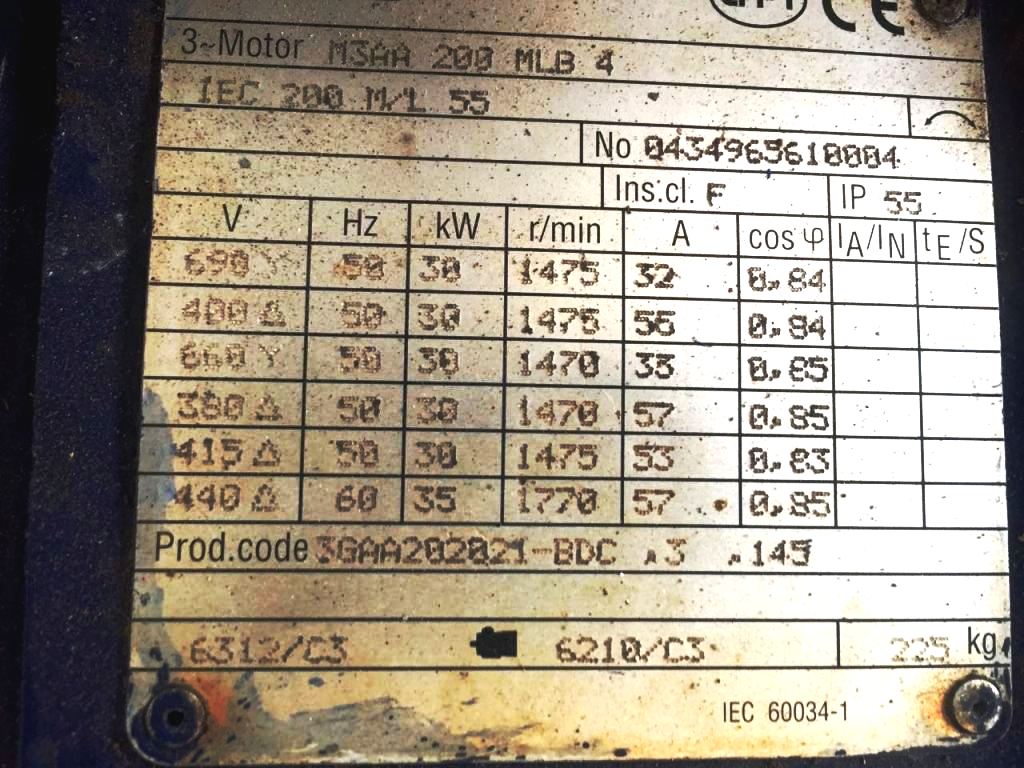 CE
3~Motor M3AA 200 MLB 4
IEC 200 M/L 55
No 0434965610004
Ins.cl. F IP 55
V Hz kW r/min A cos φ IA/IN tE/S
690 Y 50 30 1475 32 0.84
400 Δ 50 30 1475 55 0.84
660 Y 50 30 1470 33 0.85
380 Δ 50 30 1470 57 0.85
415 Δ 50 30 1475 53 0.83
440 Δ 60 35 1770 57 0.85
Prod.code 3GAA202021-BDC .3 .145
6312/C3 6210/C3 225 kg
IEC 60034-1